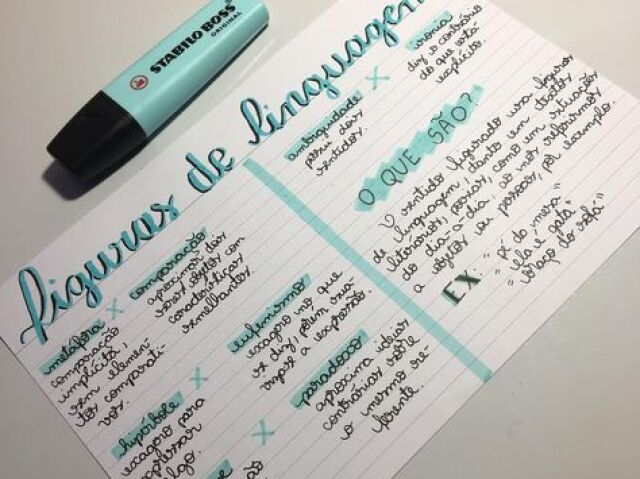 STABILO BOSS
ORIGINAL
figuras de linguagem
metáfora
comparação
implícita,
sem elemen-
tos comparati-
vos.
x
comparação
aproxima dois
seres, objetos com
características
semelhantes.
hipérbole
exagero para
expressar
algo.
x
eufemismo
exagero no que
se diz, porém sua
a expressão.
x
paradoxo
aproxima ideias
contrárias sobre
o mesmo re-
ferente.
ambiguidade
possui dois
sentidos.
x
ironia
diz o contrário
do que está
explícito.
O QUE SÃO?
O sentido figurado usa figuras
de linguagem, tanto em textos
literários, poesias, como em situações
do dia-a-dia ao nos referirmos
a objetos ou pessoas, por exemplo.
EX: "pé da mesa"
"ela é gata"
"braço do sofá"